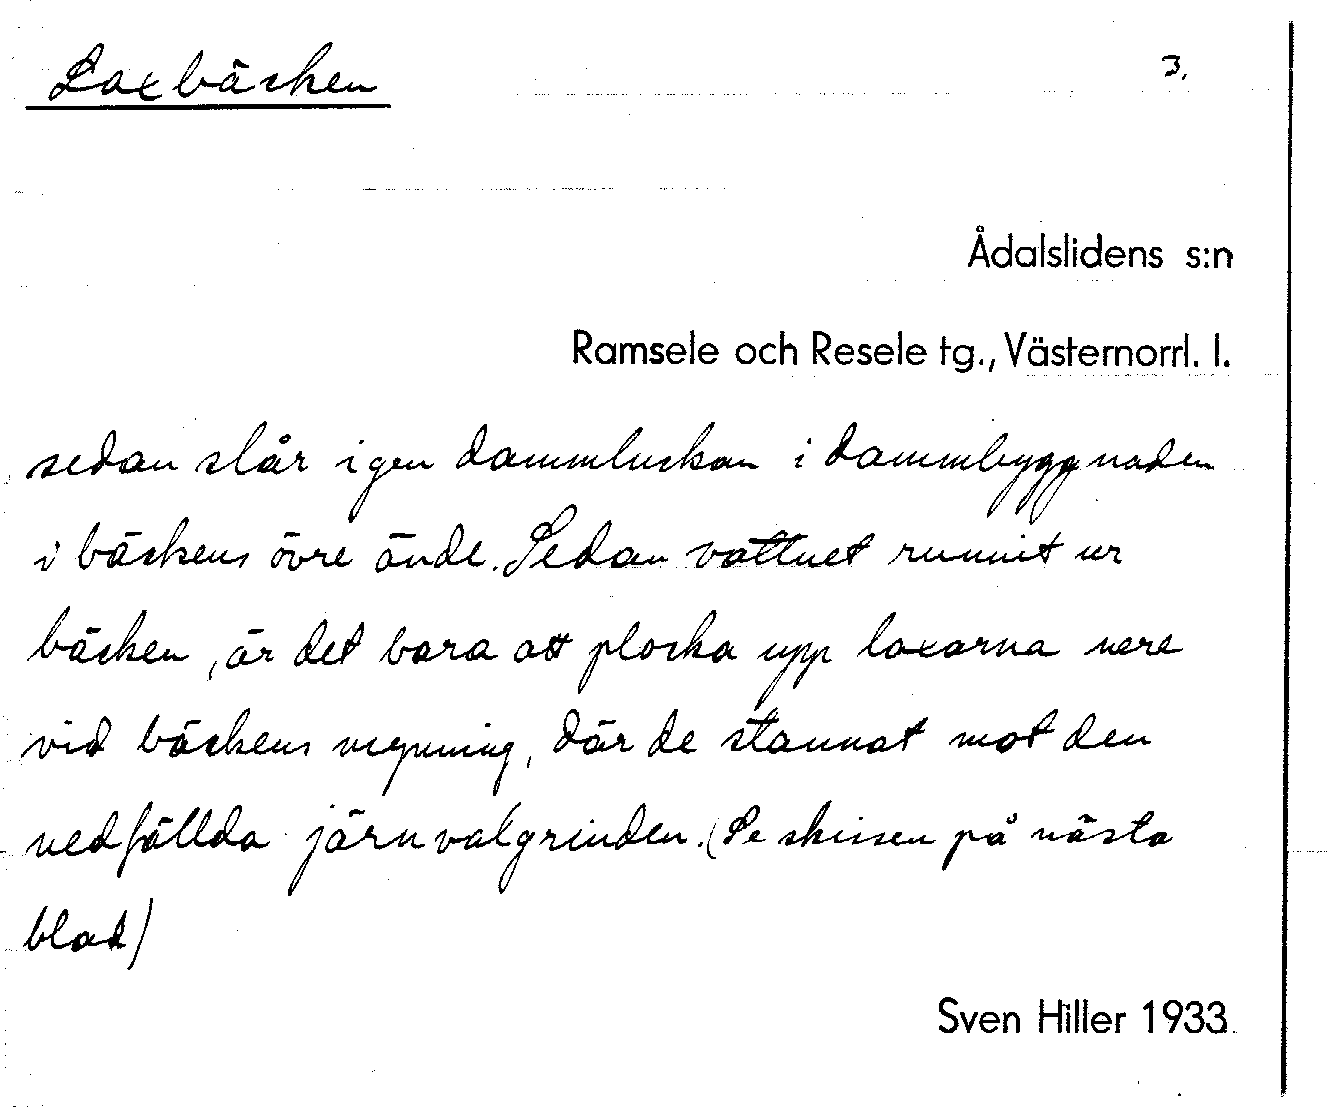 Laxbäcken
3.
Ådalslidens s:n
Ramsele och Resele tg., Västernorrl. l.
sedan slår igen dammluckan i dammbyggnaden
i bäckens övre ände. Sedan vattnet runnit ur
bäcken, är det bara att plocka upp laxarna nere
vid bäckens mynning, där de stannat mot den
nedfällda järnvalgrinden. (Se skissen på nästa
blad)
Sven Hiller 1933